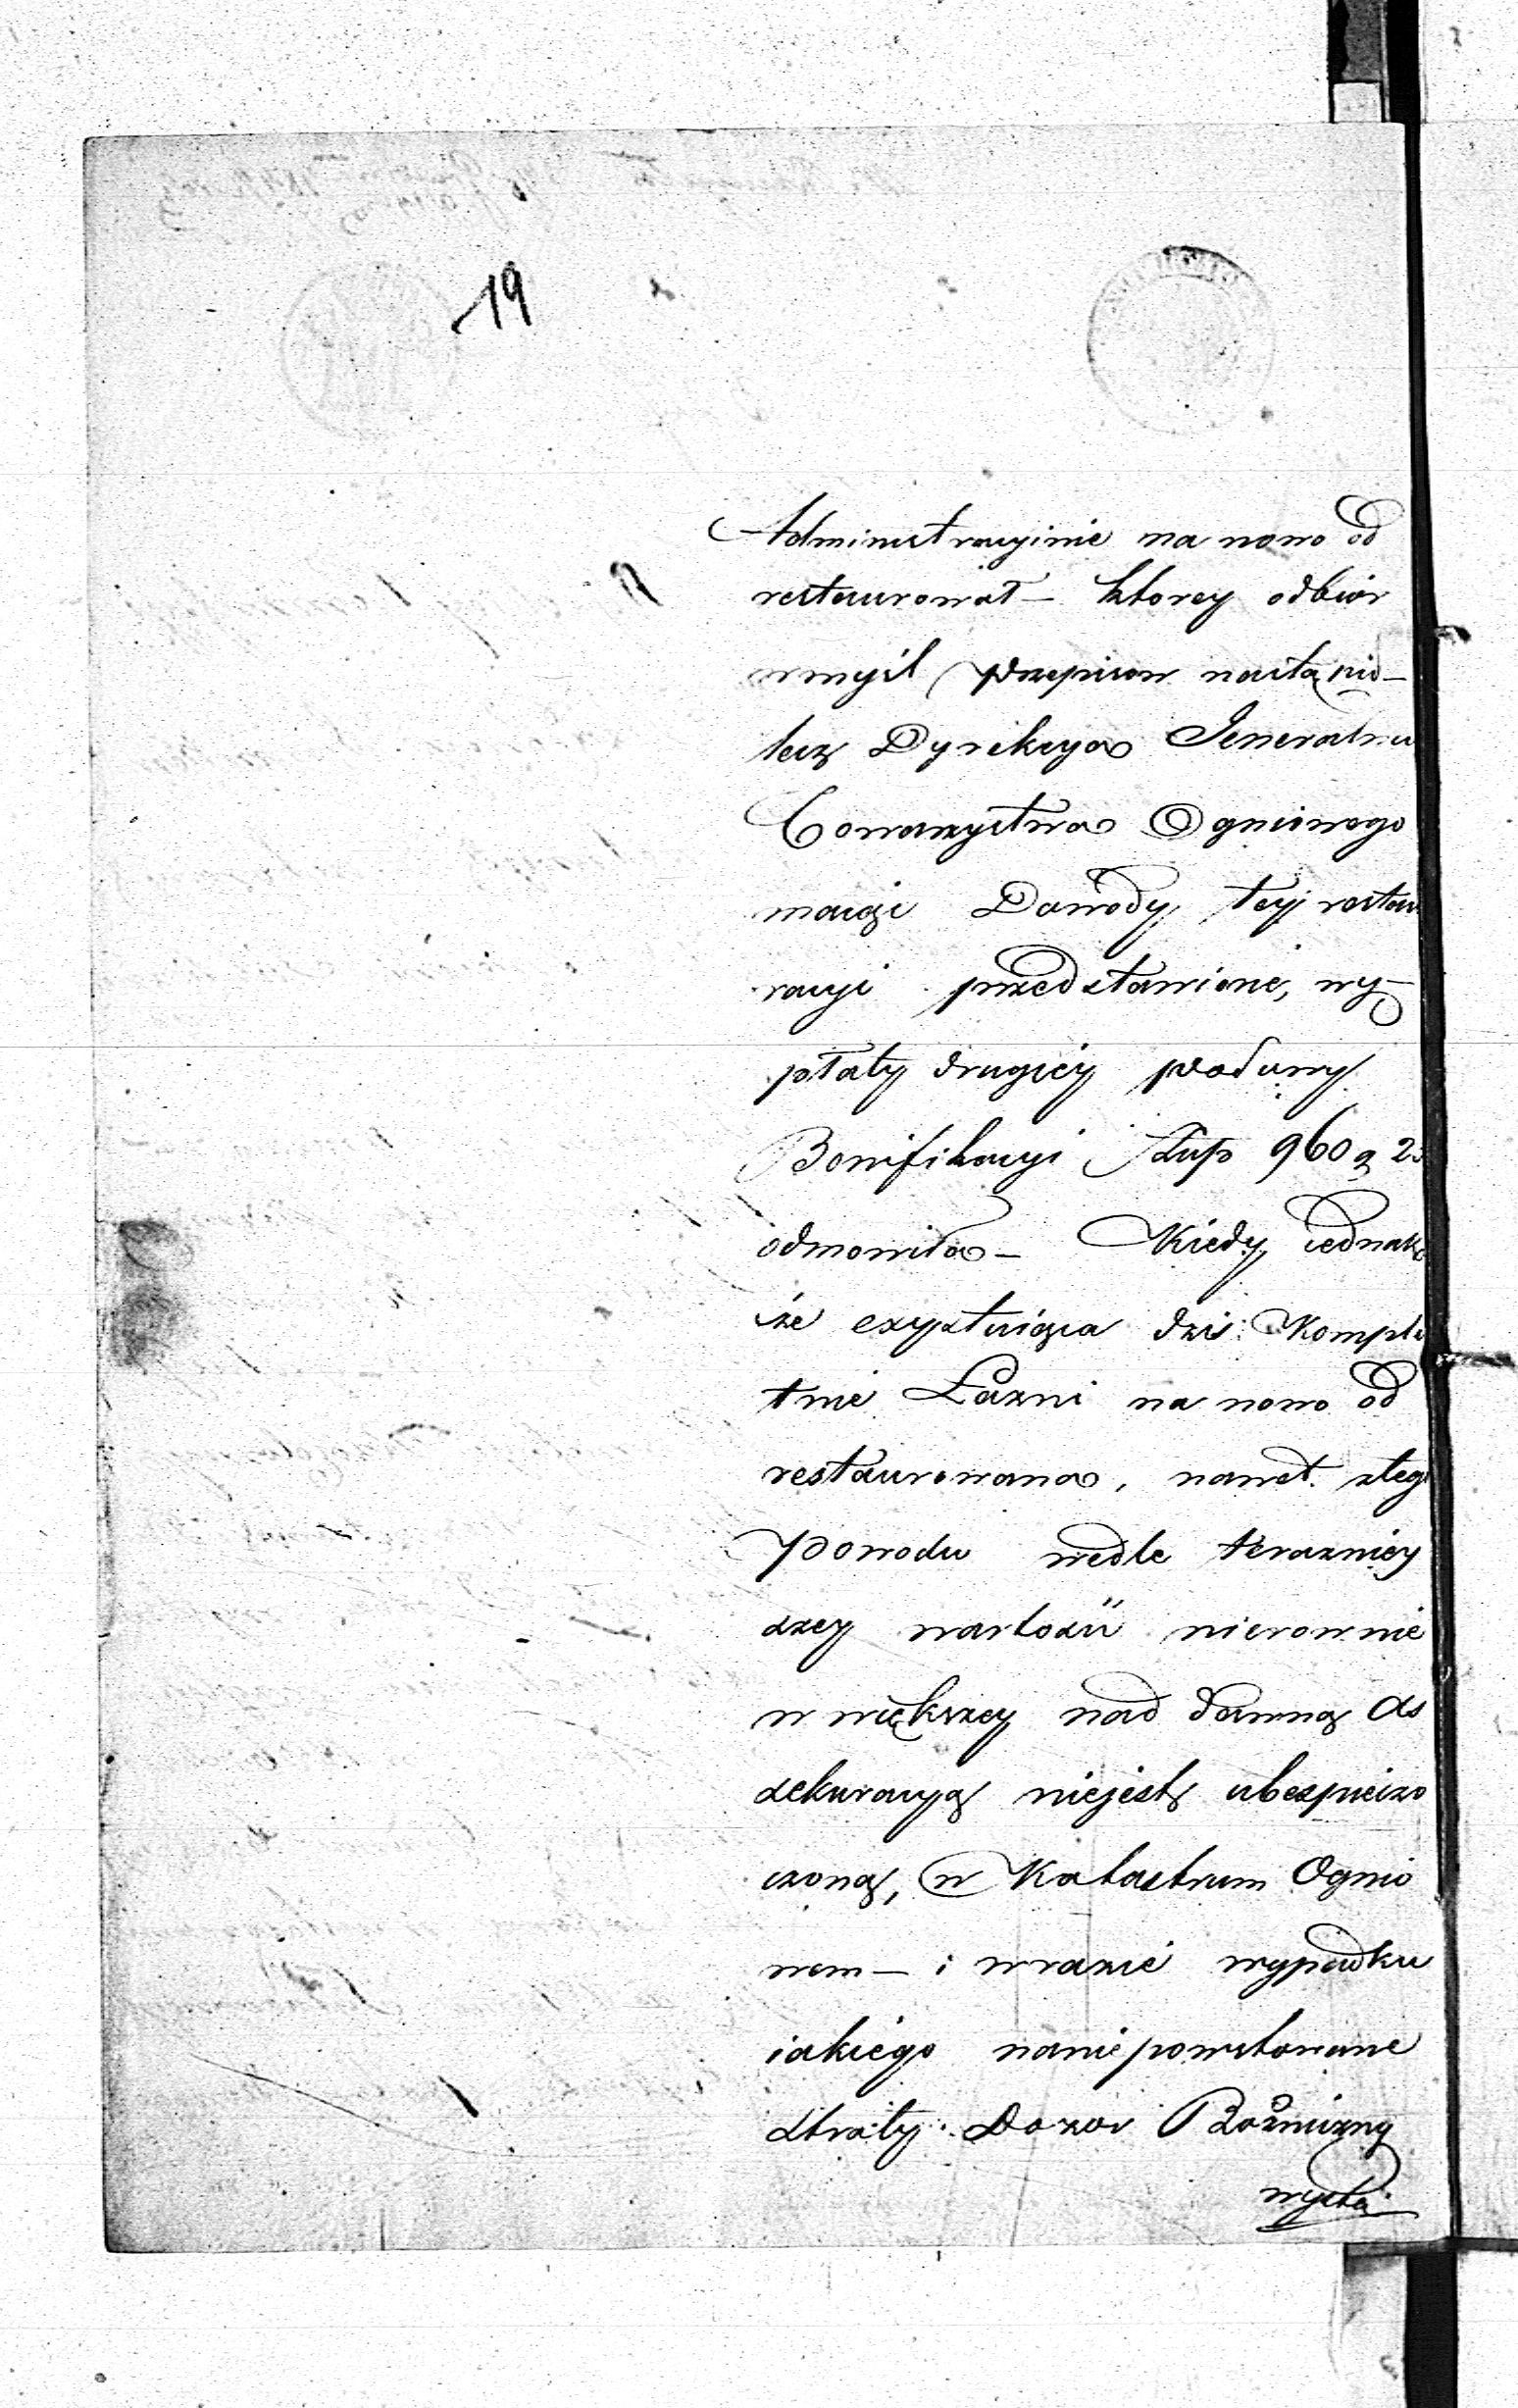 19
Administracyinie na nowo od
restaurował – ktorey odbior
wmyśl przepisow nastąpił –
lecz Dyrekcya Jeneralna
Towarzystwa Ogniowego
maiąc Dowody tey restau
racyi przedstawione, wy-
płaty drugiey połowy
Bonifikacyi złup 960 g 23
odmowiła – Kiedy iednak
że exystuiąca dziś komple
tnie Łaznia na nowo od
restaurowana, nawet ztego
powodu wedle terazniey
szey wartości nierownie
w większey nad dawną As
sekuracyą niejest ubezpiecze
czoną, w Katastrum Ognio
wem – i wrazie wypadku
iakiego naniepowetowane
straty Dozor Bożniczny
wysta